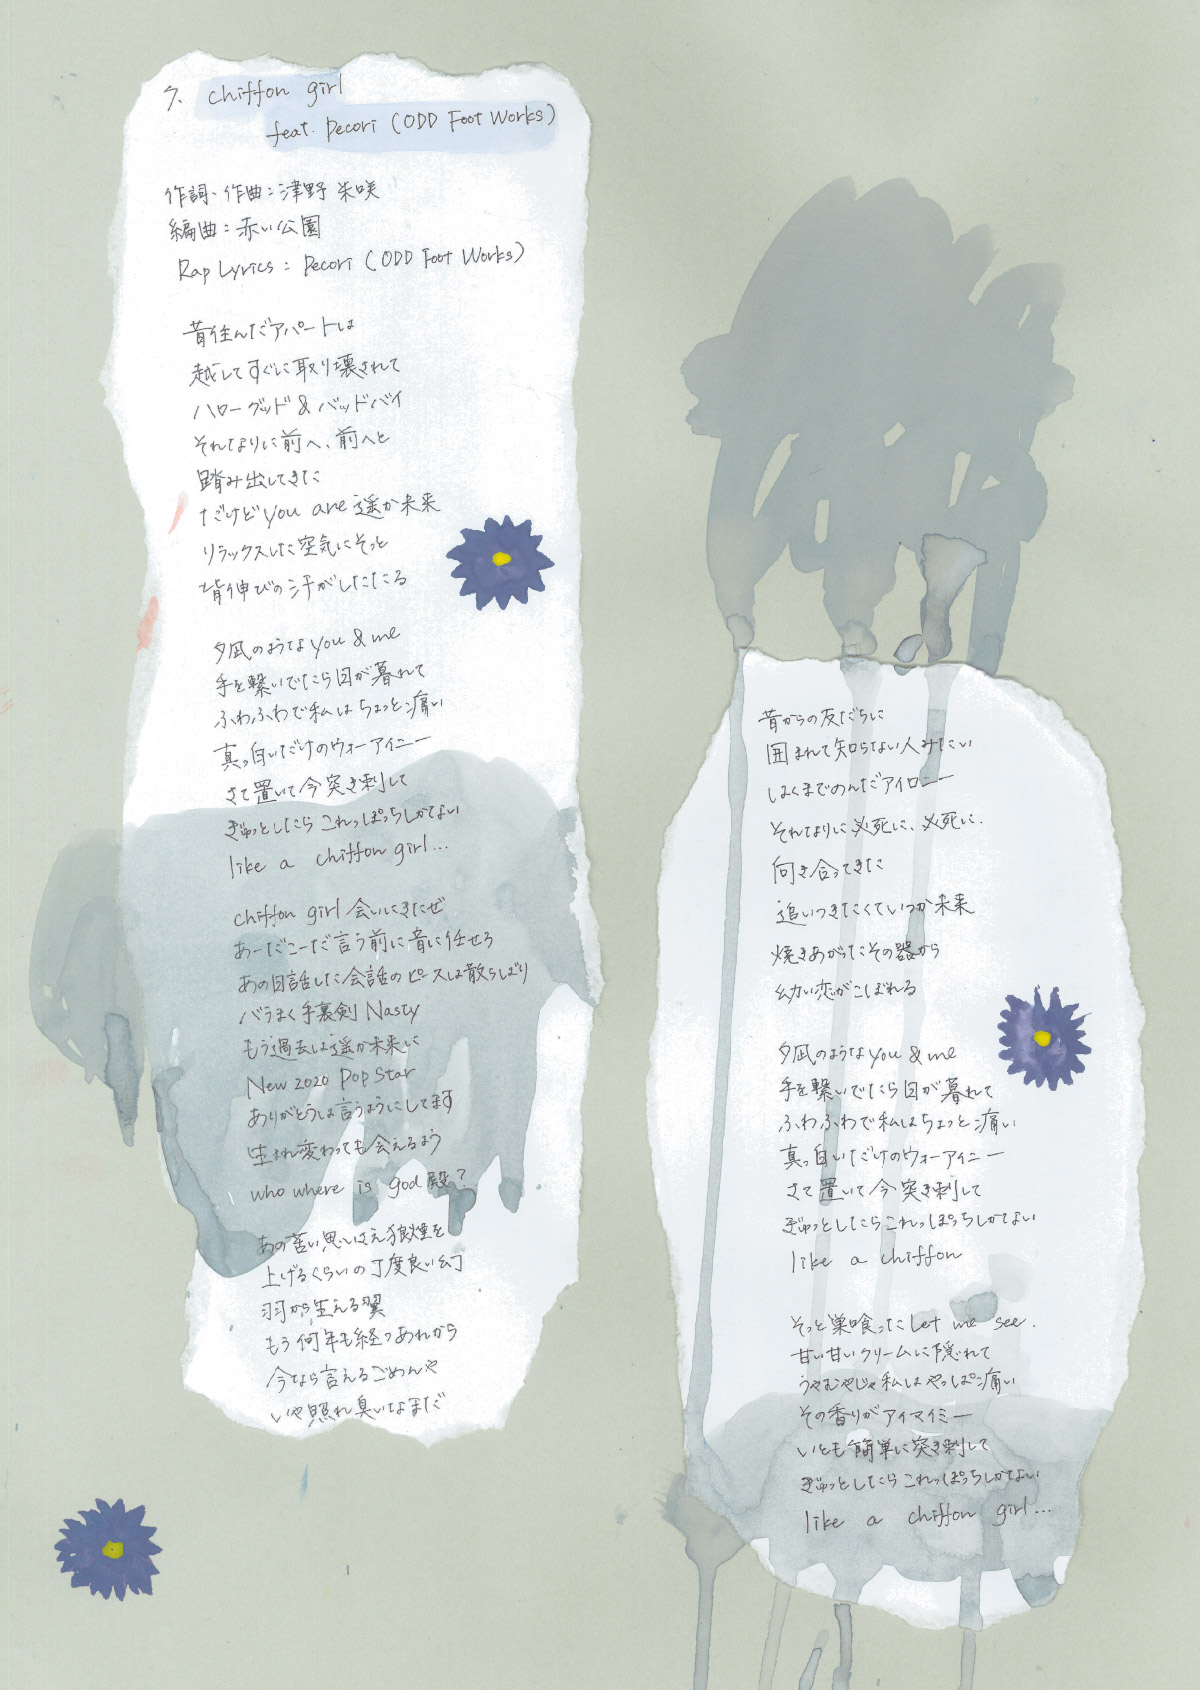 7. chiffon girl
feat. Pecori (ODD Foot Works)
作詞・作曲：津野 米咲
編曲：赤い公園
Rap Lyrics：Pecori (ODD Foot Works)
昔住んだアパートは
越してすぐに取り壊されて
ハローグッド&バッドバイ
それなりに前へ、前へと
踏み出してきた
だけど you are 遥か未来
リラックスした空気にそっと
背伸びの汗がしたたる
夕凪のような you & me
手を繋いでたら日が暮れて
ふわふわで私はちょっと痛い
真っ白いだけのウォーアイニー
さて置いて今突き刺して
ぎゅっとしたら これっぽっちしかない
like a chiffon girl...
chiffon girl 会いにきたぜ
あーだこーだ言う前に音に任せろ
あの日話した会話のピースは散らばり
バラまく手裏剣 Nasty
もう過去は遥か未来に
New 2020 Pop Star
ありがとうは言うようにしてます
生まれ変わっても会えるよう
who where is god 殿？
あの苦い思いさえ狼煙を
上げるくらいの丁度良い幻
羽から生える翼
もう何年も経つあれから
今なら言えるごめんや
いや照れ臭いなまだ
昔からの友だちに
囲まれて知らない人みたい
しくまでのんだアイロニー
それなりに必死に、必死に、
向き合ってきた
追いつきたくていつか未来
焼きあがったその器から
幼い恋がこぼれる
夕凪のような you & me
手を繋いでたら日が暮れて
ふわふわで私はちょっと痛い
真っ白いだけのウォーアイニー
さて置いて今突き刺して
ぎゅっとしたらこれっぽっちしかない
like a chiffon
そっと巣喰ったLet me see.
甘い甘いクリームに隠れて
うやむやじゃ私はやっぱ痛い
その香りがアイマイミー
いとも簡単に突き刺して
ぎゅっとしたら これっぽっちしかない
like a chiffon girl...